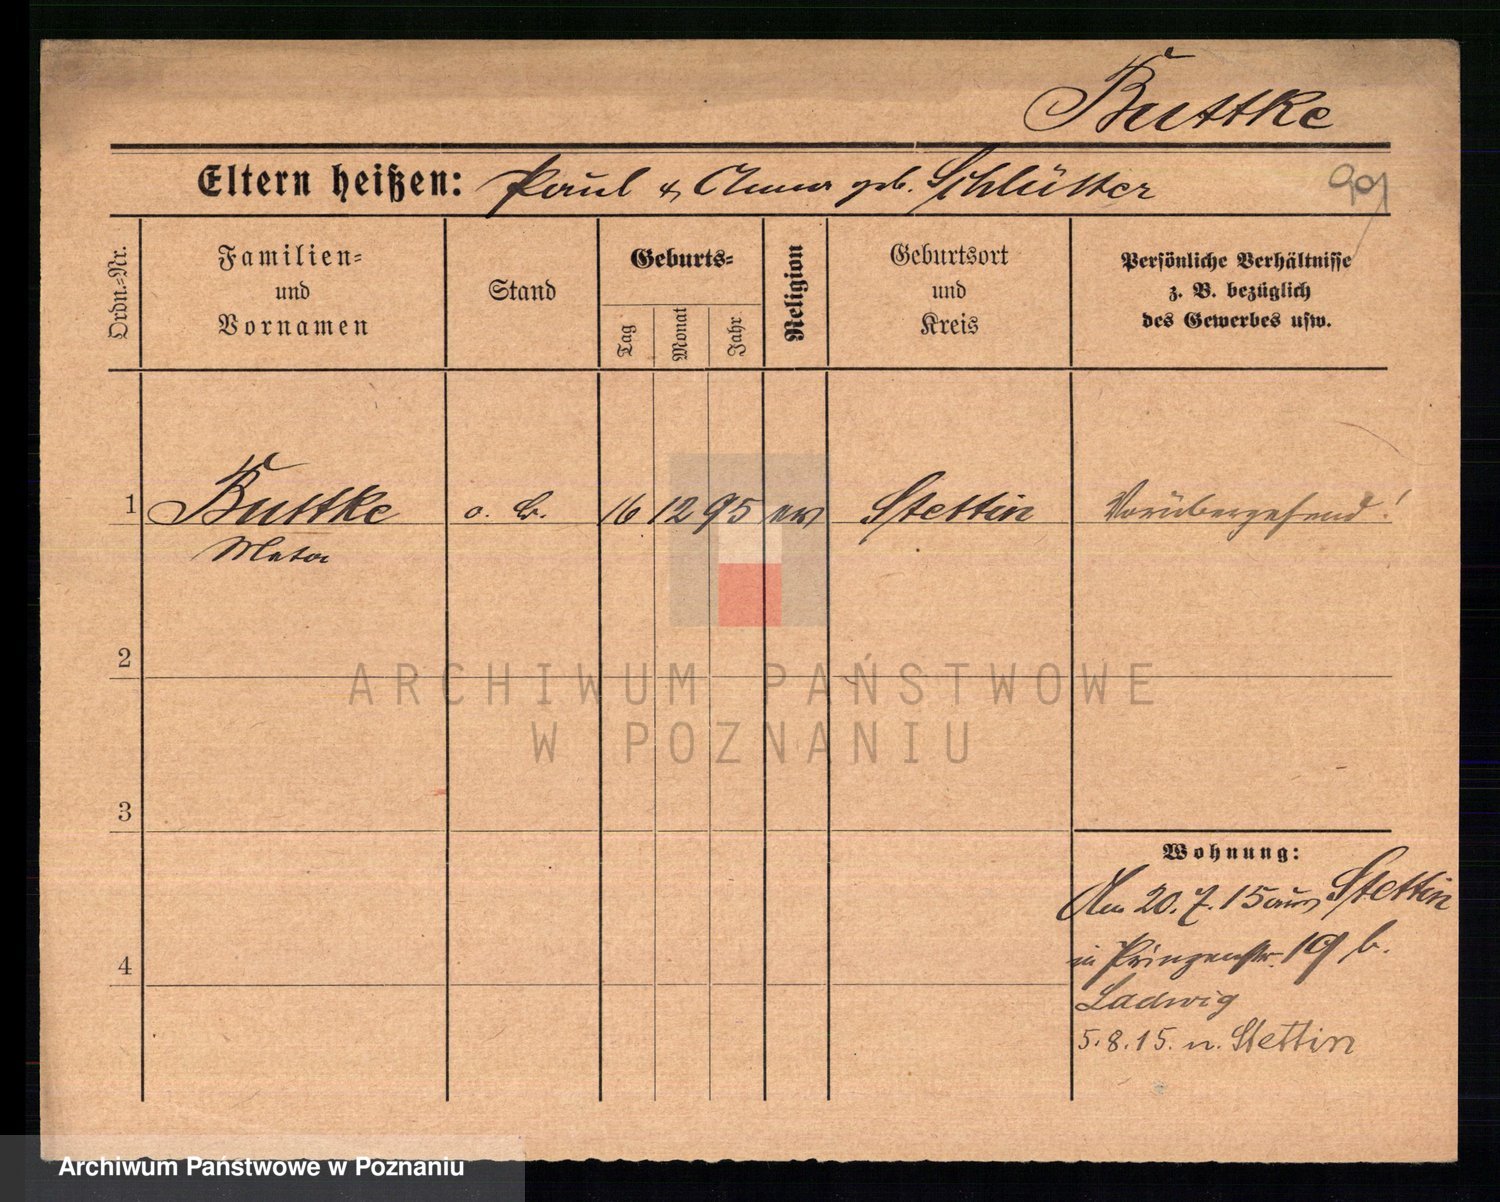 Buttke
Eltern heißen: Paul & Anna geb. Schlütter
901
Ordn.-Nr.
Familien-
und
Vornamen
Stand
Geburts-
Tag
Monat
Jahr
Religion
Geburtsort
und
Kreis
Persönliche Verhältnisse
z. B. bezüglich
des Gewerbes usw.
1 Buttke o. B. 16 12 95 ev Stettin Vorübergehend!
Meta
2
3
4
Wohnung:
Am 20. 7. 15 aus Stettin
in Prinzenstr. 19 b.
Ladwig
5. 8. 15. n. Stettin
ARCHIWUM PAŃSTWOWE
W POZNANIU
Archiwum Państwowe w Poznaniu